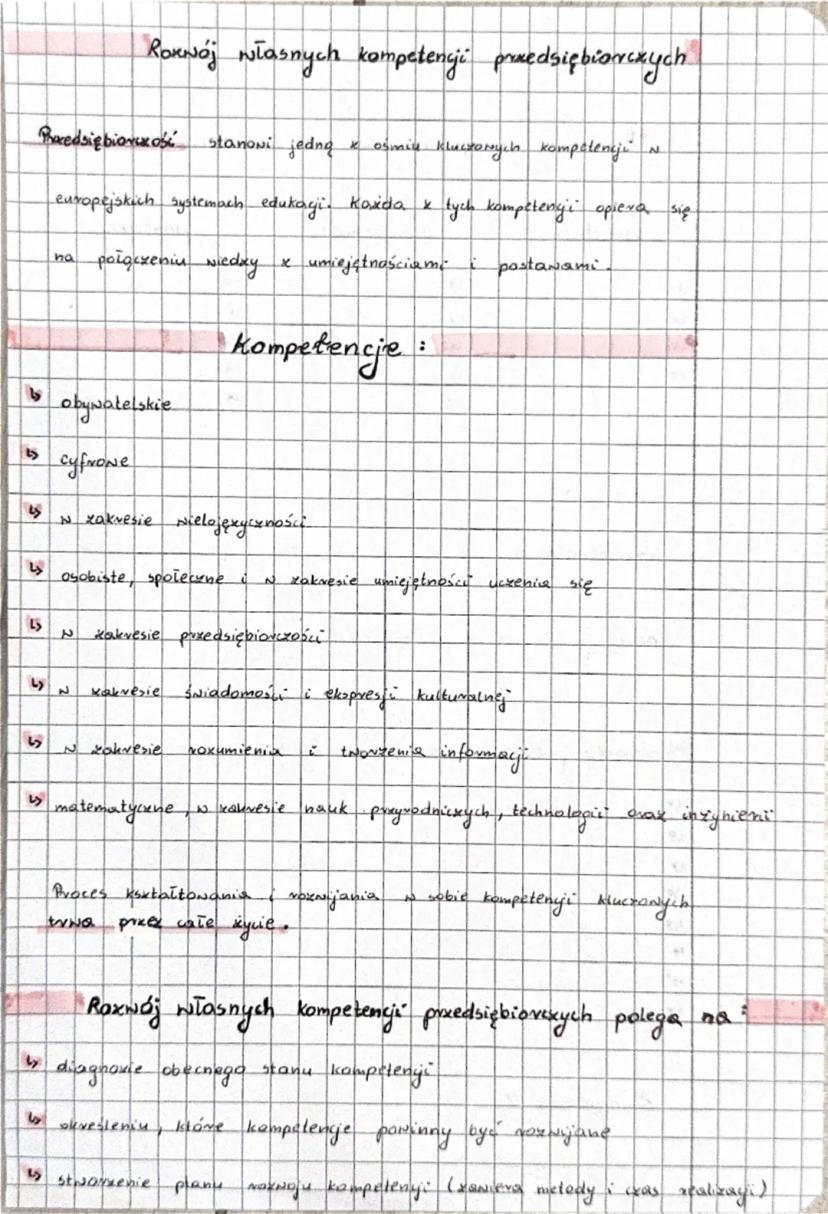 Rozwój własnych kompetencji przedsiębiorczych
Przedsiębiorczość stanowi jedną z ośmiu kluczowych kompetencji w
europejskich systemach edukacji. Każda z tych kompetencji opiera się
na połączeniu wiedzy z umiejętnościami i postawami.
Kompetencje:
↳ obywatelskie
↳ cyfrowe
↳ w zakresie wielojęzyczności
↳ osobiste, społeczne i w zakresie umiejętności uczenia się
↳ w zakresie przedsiębiorczości
↳ w zakresie świadomości i ekspresji kulturalnej
↳ w zakresie rozumienia i tworzenia informacji
↳ matematyczne, w zakresie nauk przyrodniczych, technologii oraz inżynierii
Proces kształtowania i rozwijania w sobie kompetencji kluczowych
trwa przez całe życie.
Rozwój własnych kompetencji przedsiębiorczych polega na:
↳ diagnozie obecnego stanu kompetencji
↳ określeniu, które kompetencje powinny być rozwijane
↳ stworzenie planu rozwoju kompetencji (zawiera metody i czas realizacji)